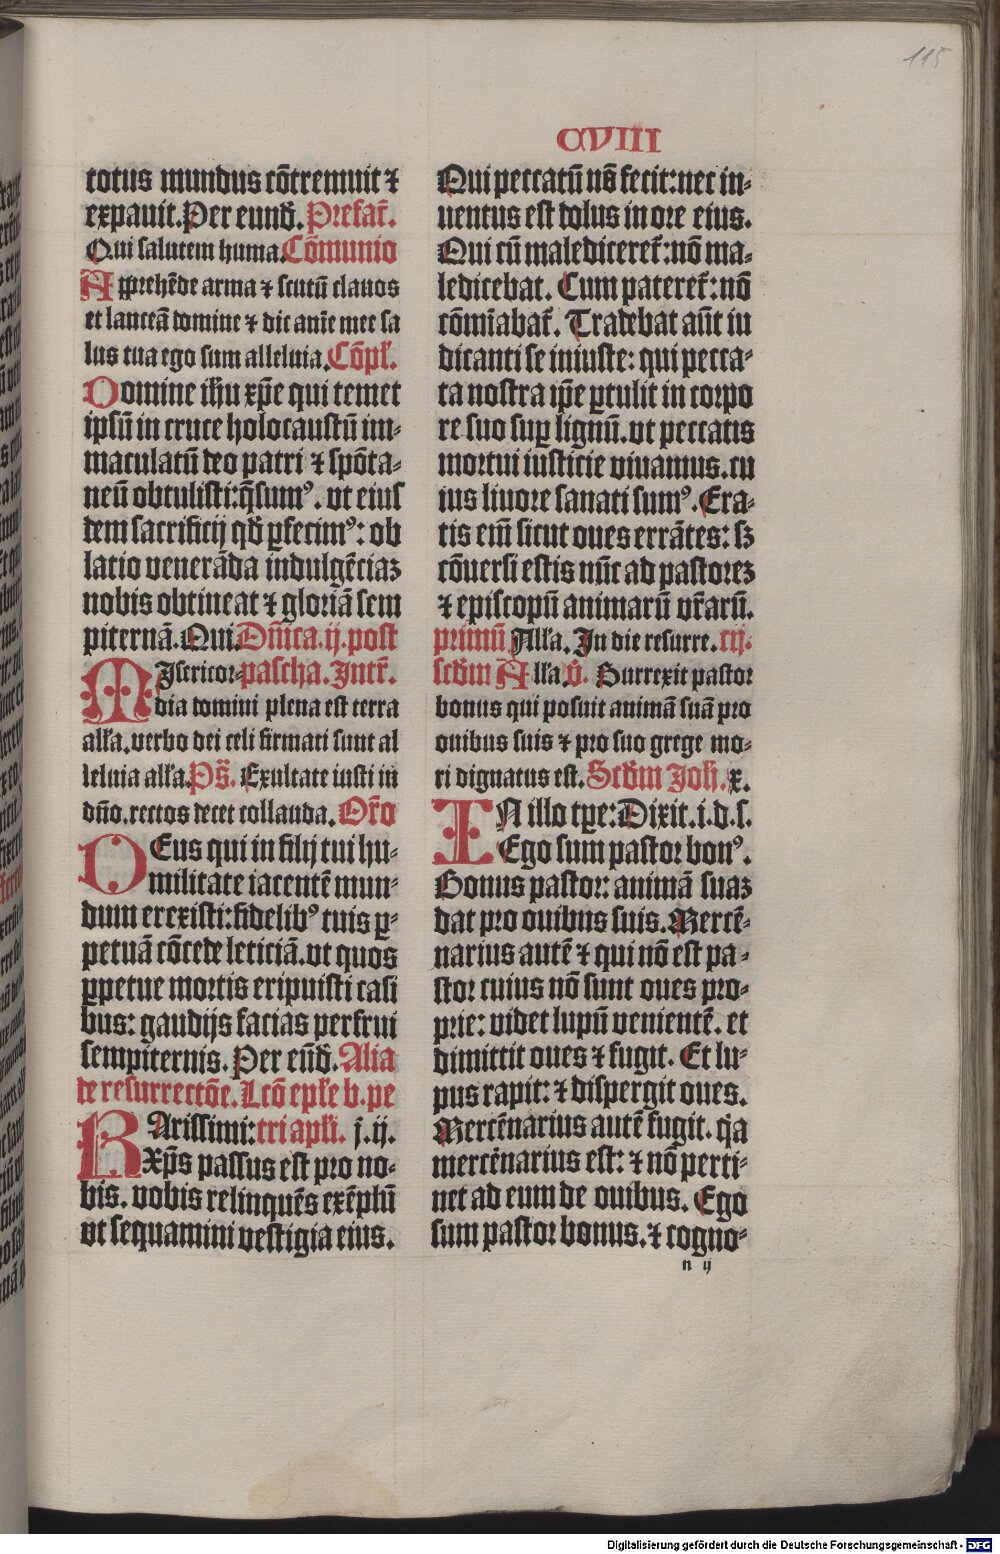 115
CVIII
totus mundus cõtremuit ⁊
expauit. Per eund̄. Prefat̄.
Qui salutem huma. Cõmunio
Apprehẽde arma ⁊ scutũ clauos
et lanceã domine ⁊ dic anīe mee sa
lus tua ego sum alleluia. Cõpl̄.
Domine ih̄u xp̄e qui temet
ipsũ in cruce holocaustũ im⸗
maculatũ deo patri ⁊ spõta⸗
neũ obtulisti: q̄sumꝰ. vt eius
dem sacrificij qd̄ ꝑfecimꝰ: ob
latio venerãda indulgẽciaꝫ
nobis obtineat ⁊ gloriã sem
piternã. Qui. Dñica. ij. post
MIsericor⸗ pascha. Intr̄.
dia domini plena est terra
all̄a. verbo dei celi firmati sunt al
leluia all̄a. Ps̄. Exultate iusti in
dño. rectos decet collauda. Or̄o
DEus qui in filij tui hu⸗
militate iacentẽ mun⸗
dum erexisti: fidelibꝰ tuis ꝑ⸗
petuã cõcede leticiã. vt quos
ꝑpetue mortis eripuisti casi
bus: gaudijs facias perfrui
sempiternis. Per eũd̄. Alia
de resurrectõe. Lcõ epl̄e b. pe
KArissimi: tri apl̄i. j. ij.
Xp̄s passus est pro no⸗
bis. vobis relinquẽs exẽplũ
vt sequamini vestigia eius.
Qui peccatũ nõ fecit: nec in⸗
uentus est dolus in ore eius.
Qui cũ malediceret̄: nõ ma⸗
ledicebat. Cum pateret̄: nõ
cõmīabat̄. Tradebat aũt iu
dicanti se iniuste: qui pecca⸗
ta nostra ip̄e ꝑtulit in corpo
re suo suꝑ lignũ. vt peccatis
mortui iusticie viuamus. cu
ius liuore sanati sumꝰ. Era⸗
tis em̄ sicut oues errãtes: sꝫ
cõuersi estis nũc ad pastoreꝫ
⁊ episcopũ animarũ vr̄arũ.
primũ All̄a. In die resurre. cij.
sc̄dm All̄a. v̄. Surrexit pastor
bonus qui posuit animã suã pro
ouibus suis ⁊ pro suo grege mo⸗
ri dignatus est. Sc̄dm Joh̄. x.
IN illo tꝑe: Dixit. i. d. s.
Ego sum pastor bonꝰ.
Bonus pastor: animã suaꝫ
dat pro ouibus suis. Mercẽ⸗
narius autẽ ⁊ qui nõ est pa⸗
stor cuius nõ sunt oues pro⸗
prie: videt lupũ venientẽ. et
dimittit oues ⁊ fugit. Et lu⸗
pus rapit: ⁊ dispergit oues.
Mercẽnarius autẽ fugit. q̇a
mercẽnarius est: ⁊ nõ perti⸗
net ad eum de ouibus. Ego
sum pastor bonus. ⁊ cogno⸗
n ij
Digitalisierung gefördert durch die Deutsche Forschungsgemeinschaft - DFG